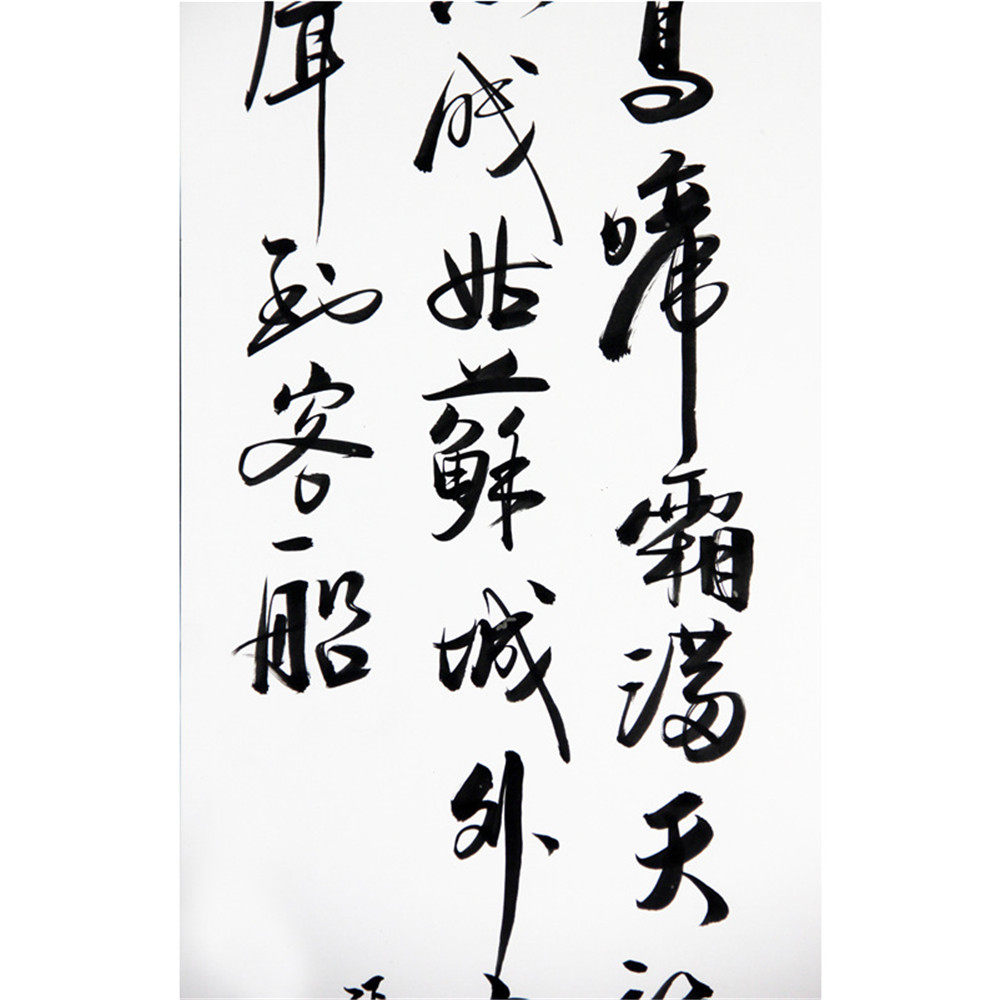 烏啼霜滿天
眠姑蘇城外
到客船